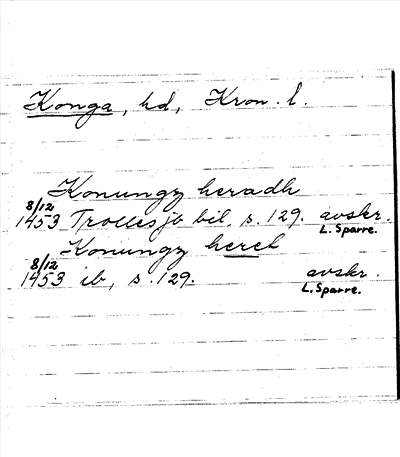 Konga, hd, Kron. l.
Konungz heradh
8/12
1453 Trolles jb bil. s. 129. avskr.
L. Sparre.
Konungz hereh
8/12
1453 ib, s. 129. avskr.
L. Sparre.